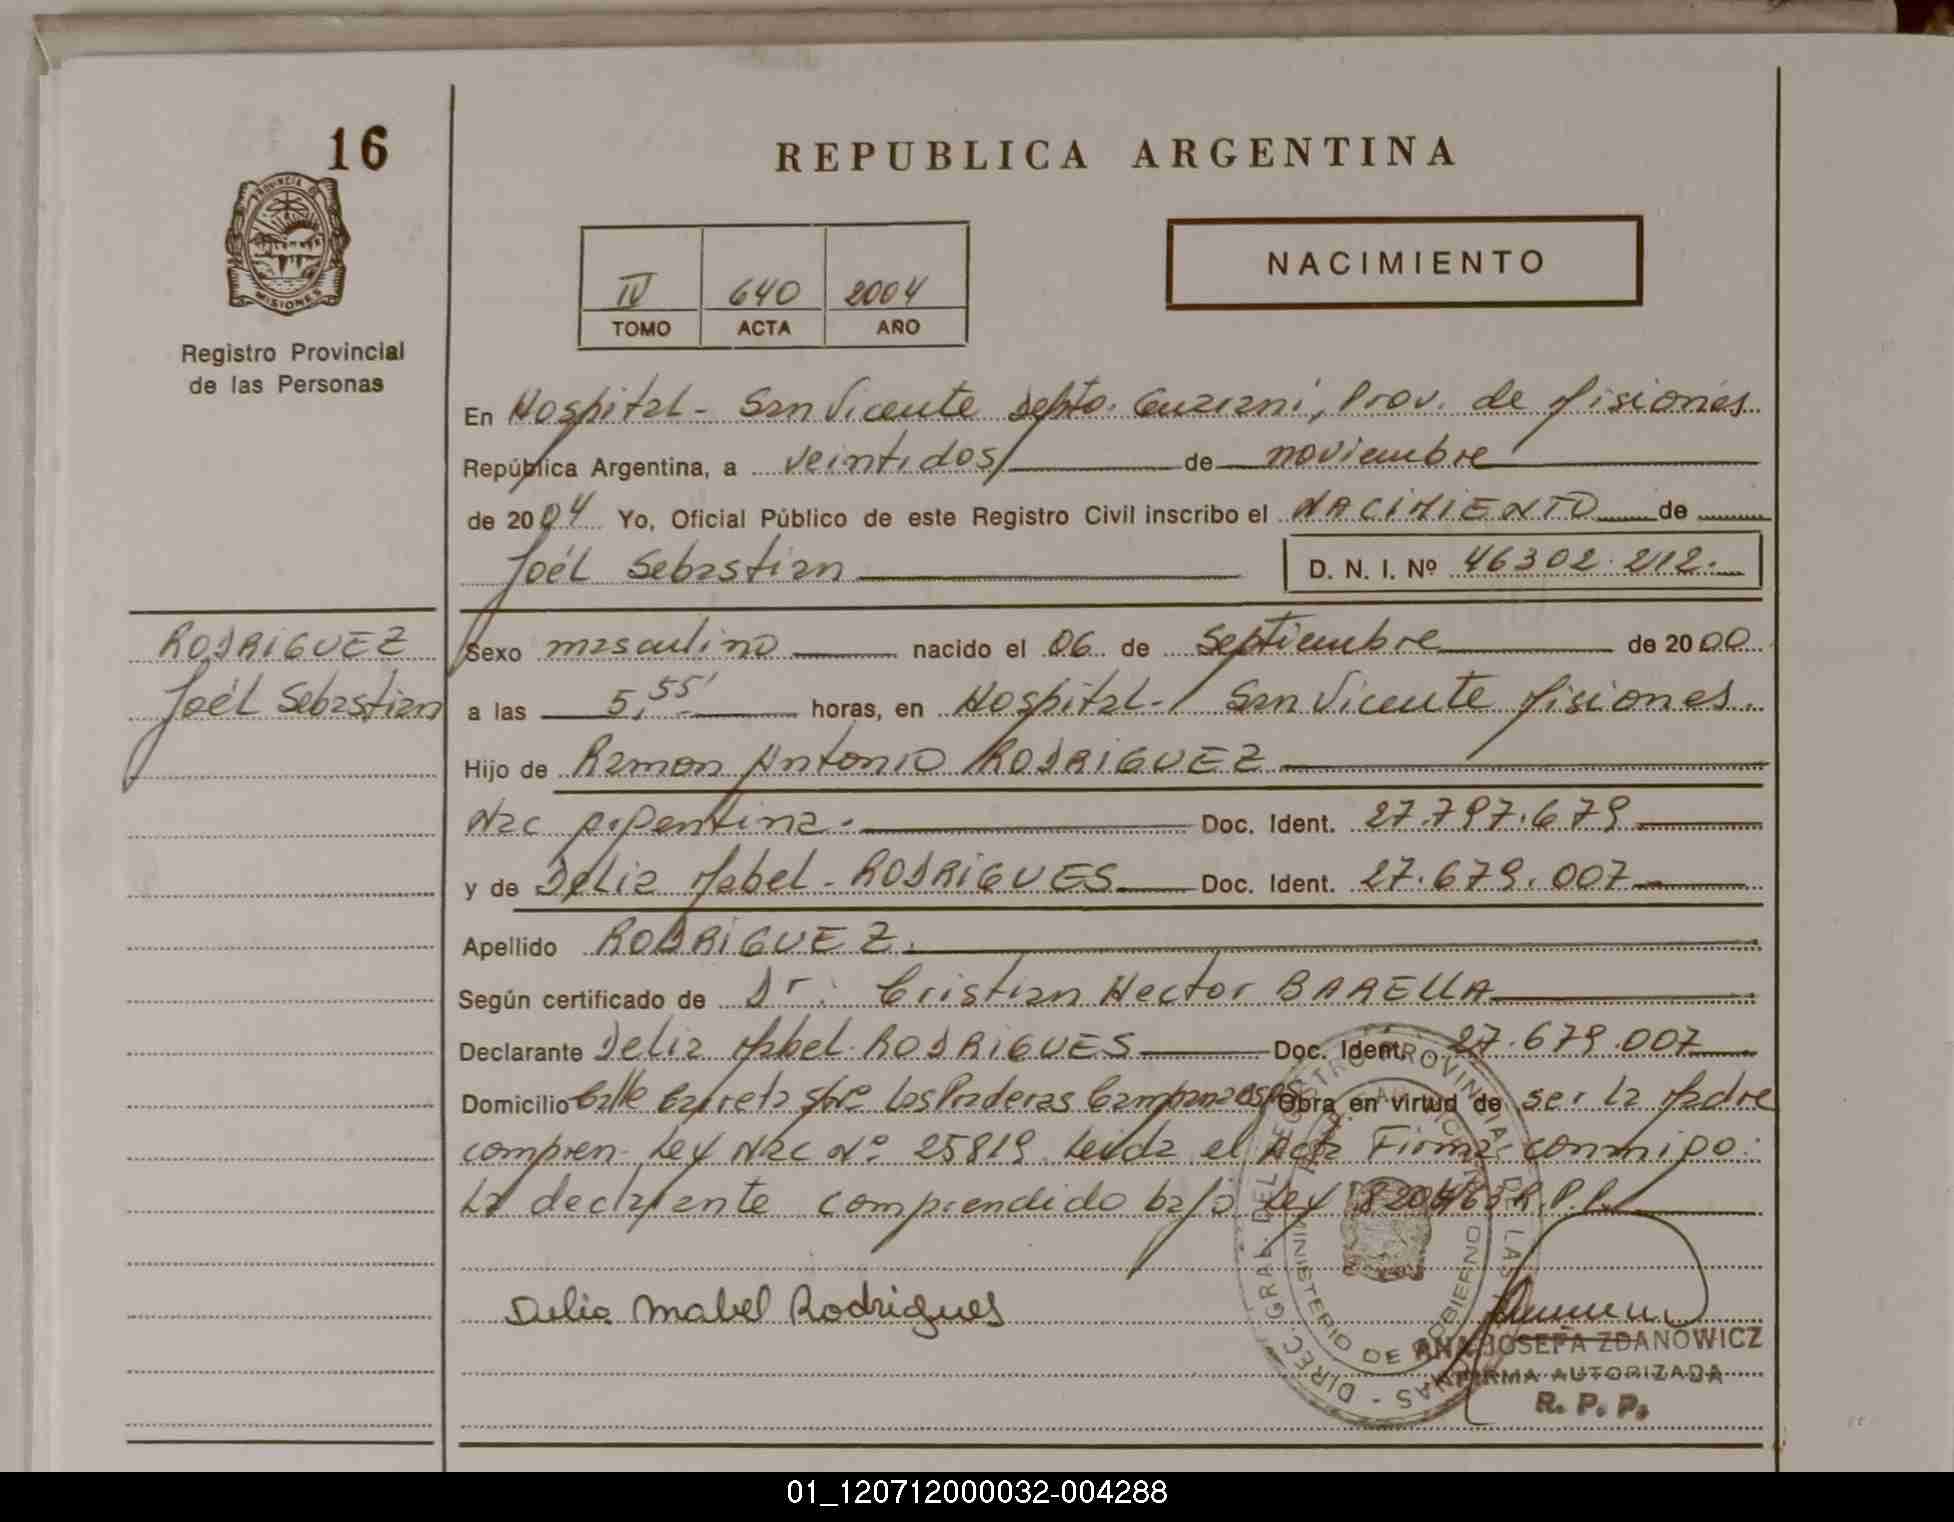 16
PROVINCIA DE
MISIONES
Registro Provincial
de las Personas
REPUBLICA ARGENTINA
IV 640 2004
TOMO ACTA AÑO
NACIMIENTO
En Hospital - San Vicente Depto. Guarani, Prov. de Misiones
República Argentina, a veintidos de noviembre
de 2004 Yo, Oficial Público de este Registro Civil inscribo el NACIMIENTO de
Joél Sebastian D. N. I. Nº 46302.212.
RODRIGUEZ
Joél Sebastian
Sexo masculino nacido el 06 de Septiembre de 2000
a las 5,55' horas, en Hospital - San Vicente Misiones.
Hijo de Ramon Antonio RODRIGUEZ
Nac Argentina. Doc. Ident. 27.797.679
y de Delia Mabel - RODRIGUES Doc. Ident. 27.679.007
Apellido RODRIGUEZ.
Según certificado de Dr. Cristian Hector BARELLA
Declarante Delia Mabel RODRIGUES Doc. Ident. 27.679.007
Domicilio Calle Las Praderas Obra en virtud de ser la Madre
compren. Ley Nac Nº 25819 Leida el Acta Firma conmigo:
La declarante comprendido bajo Ley R.P.P.
Delia Mabel Rodrigues
DIREC. GRAL. DEL REGISTRO PROVINCIAL DE LAS PERSONAS
MINISTERIO DE GOBIERNO
ANA JOSEFA ZDANOWICZ
FIRMA AUTORIZADA
R. P. P.
01_120712000032-004288